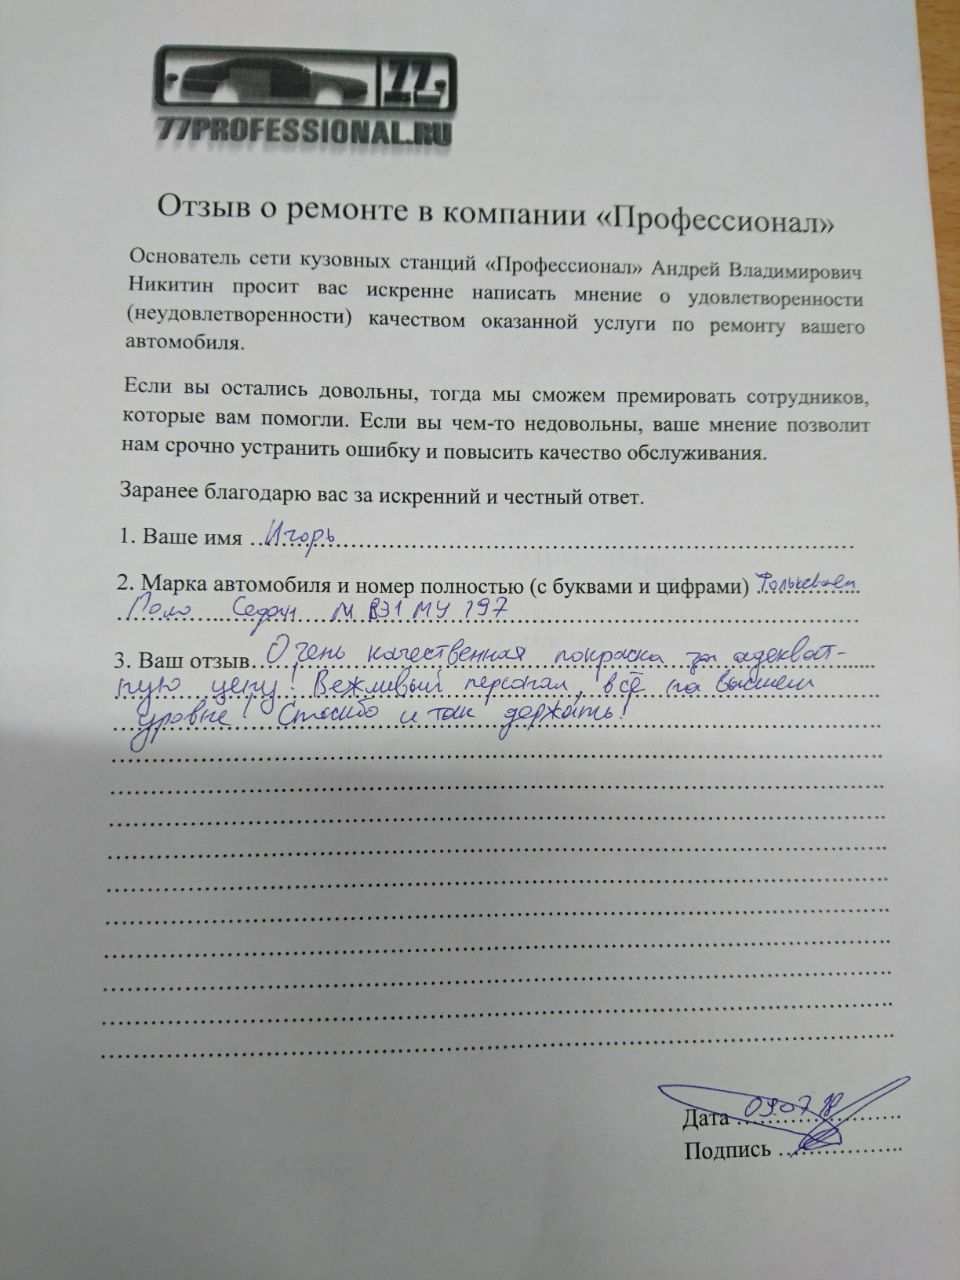 77
77PROFESSIONAL.RU
Отзыв о ремонте в компании «Профессионал»
Основатель сети кузовных станций «Профессионал» Андрей Владимирович
Никитин просит вас искренне написать мнение о удовлетворенности
(неудовлетворенности) качеством оказанной услуги по ремонту вашего
автомобиля.
Если вы остались довольны, тогда мы сможем премировать сотрудников,
которые вам помогли. Если вы чем-то недовольны, ваше мнение позволит
нам срочно устранить ошибку и повысить качество обслуживания.
Заранее благодарю вас за искренний и честный ответ.
1. Ваше имя Игорь
2. Марка автомобиля и номер полностью (с буквами и цифрами) Фольксваген
Поло Седан МУ 197
3. Ваш отзыв Очень качественная покраска за адекват-
ную цену! Вежливый персонал, всё на высшем
уровне! Спасибо и так держать!
Дата 09.07.18
Подпись